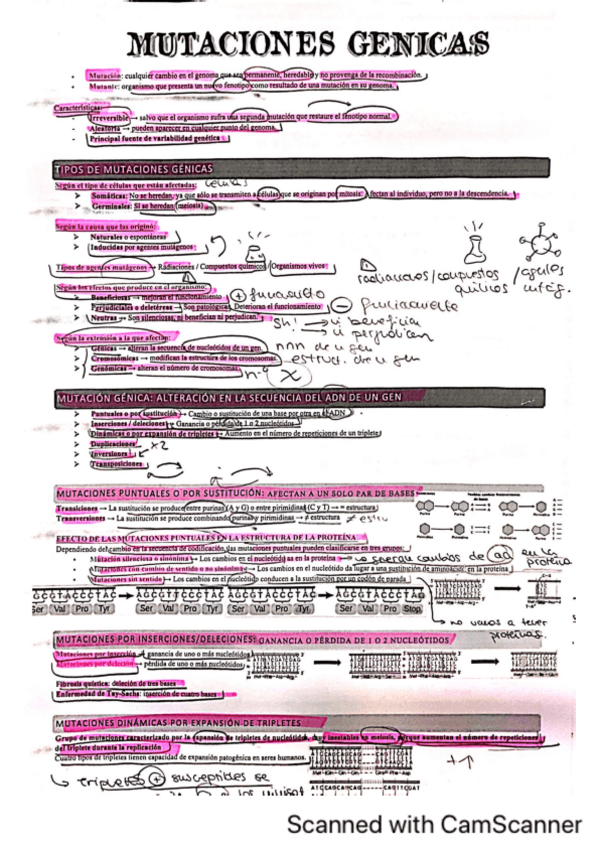 MUTACIONES GENICAS
Mutación: cualquier cambio en el genoma que sea permanente, heredable y no provenga de la recombinación.
Mutante: organismo que presenta un nuevo fenotipo como resultado de una mutación en su genoma.
Características:
Irreversible → salvo que el organismo sufra una segunda mutación que restaure el fenotipo normal.
Aleatoria → pueden aparecer en cualquier punto del genoma.
Principal fuente de variabilidad genética
TIPOS DE MUTACIONES GÉNICAS
Según el tipo de células que están afectadas: células
Somáticas: No se heredan, ya que sólo se transmiten a células que se originan por mitosis. Afectan al individuo, pero no a la descendencia.
Germinales: Si se heredan (meiosis)
Según la causa que las originó:
Naturales o espontáneas
Inducidas por agentes mutágenos
Tipos de agentes mutágenos → Radiaciones / Compuestos químicos / Organismos vivos
radiaciones / compuestos químicos /
Según los efectos que produce en el organismo:
Beneficiosas → mejoran el funcionamiento + funcionamiento
Perjudiciales o deletéreas → Son patológicas. Deterioran el funcionamiento - funcionamiento
Neutras → Son silenciosas, ni benefician ni perjudican.
ni benefician
ni perjudican
Según la extensión a la que afectan:
Génicas → alteran la secuencia de nucleótidos de un gen.
Cromosómicas → modifican la estructura de los cromosomas.
Genómicas → alteran el número de cromosomas
MUTACIÓN GÉNICA: ALTERACIÓN EN LA SECUENCIA DEL ADN DE UN GEN
Puntuales o por sustitución → Cambio o sustitución de una base por otra en el ADN
Inserciones / deleciones → Ganancia o pérdida de 1 o 2 nucleótidos
Dinámicas o por expansión de tripletes → Aumento en el número de repeticiones de un triplete
Duplicaciones x2
Inversiones
Transposiciones
MUTACIONES PUNTUALES O POR SUSTITUCIÓN: AFECTAN A UN SOLO PAR DE BASES
Transiciones → La sustitución se produce entre purinas (A y G) o entre pirimidinas (C y T) → = estructura
Transversiones → La sustitución se produce combinando purina y pirimidinas → ≠ estructura
EFECTO DE LAS MUTACIONES PUNTUALES EN LA ESTRUCTURA DE LA PROTEÍNA
Dependiendo del cambio en la secuencia de codificación, las mutaciones puntuales pueden clasificarse en tres grupos:
Mutación silenciosa o sinónima → Los cambios en el nucleótido as en la proteína → no genera cambios de aa en la proteína
Mutaciones con cambio de sentido o no sinónima → Los cambios en el nucleótido da lugar a una sustitución de aminoácidos en la proteína
Mutaciones sin sentido → Los cambios en el nucleótido conducen a la sustitución por un codón de parada
Ser Val Pro Tyr Ser Val Pro Tyr Ser Val Pro Tyr Ser Val Pro Stop
no vamos a tener proteínas.
MUTACIONES POR INSERCIONES/DELECIONES: GANANCIA O PÉRDIDA DE 1 O 2 NUCLEÓTIDOS
Mutaciones por inserción → ganancia de uno o más nucleótidos
Mutaciones por deleción → pérdida de uno o más nucleótidos
Fibrosis quística: deleción de tres bases
Enfermedad de Tay-Sachs: inserción de cuatro bases
MUTACIONES DINÁMICAS POR EXPANSIÓN DE TRIPLETES
Grupo de mutaciones caracterizado por la expansión de tripletes de nucleótidos, muy inestables en meiosis, porque aumentan el número de repeticiones
del triplete durante la replicación
Cuatro tipos de tripletes tienen capacidad de expansión patogénica en seres humanos.
tripletes + susceptibles se
Scanned with CamScanner